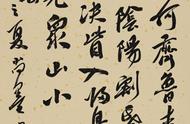 何齊魯青
陰陽割昏
決眥入歸
覽眾山小
之夏尚墨